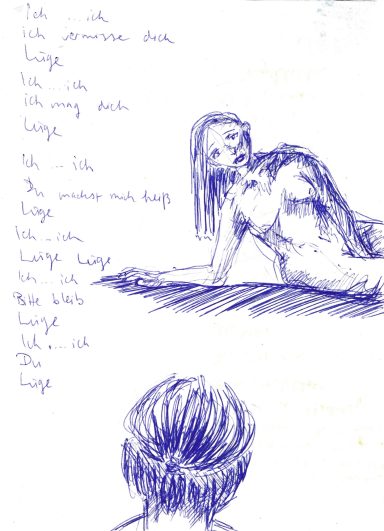 Ich ... ich
ich vermisse dich
Lüge
Ich ... ich
ich mag dich
Lüge
Ich ... ich
Du machst mich heiß
Lüge
Ich ... ich
Lüge Lüge
Ich ... ich
Bitte bleib
Lüge
Ich .... ich
Du
Lüge